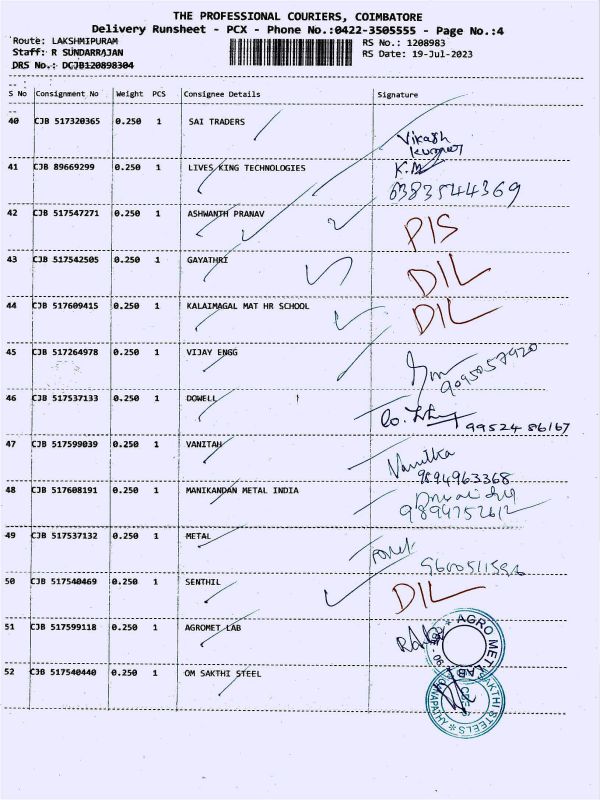 THE PROFESSIONAL COURIERS, COIMBATORE
Delivery Runsheet - PCX - Phone No.:0422-3505555 - Page No.:4
Route: LAKSHMIPURAM RS No.: 1208983
Staff: R SUNDARRAJAN RS Date: 19-Jul-2023
DRS No.: DCJB120898304
S No Consignment No Weight PCS Consignee Details Signature
40 CJB 517320365 0.250 1 SAI TRADERS
Vikash
Kumar
41 CJB 89669299 0.250 1 LIVES KING TECHNOLOGIES K.M
6383544369
42 CJB 517547271 0.250 1 ASHWANTH PRANAV
PIS
43 CJB 517542505 0.250 1 GAYATHRI DIL
44 CJB 517609415 0.250 1 KALAIMAGAL MAT HR SCHOOL DIL
45 CJB 517264978 0.250 1 VIJAY ENGG
9095057920
46 CJB 517537133 0.250 1 DOWELL
9952486167
47 CJB 517599039 0.250 1 VANITAH
9894963368
48 CJB 517608191 0.250 1 MANIKANDAN METAL INDIA
9894752612
49 CJB 517537132 0.250 1 METAL
50 CJB 517540469 0.250 1 SENTHIL DIL
51 CJB 517599118 0.250 1 AGROMET LAB
AGRO MET LAB
52 CJB 517540440 0.250 1 OM SAKTHI STEEL
SAKTHI STEELS